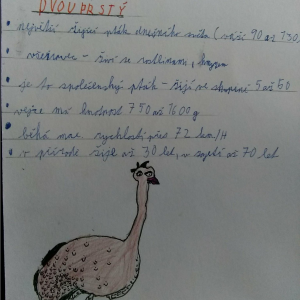 DVOUPRSTÝ
• největší žijící pták dnešního světa (váží 90 až 130
• všežravec - živí se rostlinami, hmyzem
• je to společenský pták - žijí ve skupině 5 až 50
• vejce má hmotnost 750 až 1600 g
• běhá max. rychlostí přes 72 km/H
• v přírodě žije až 30 let, v zajetí až 70 let